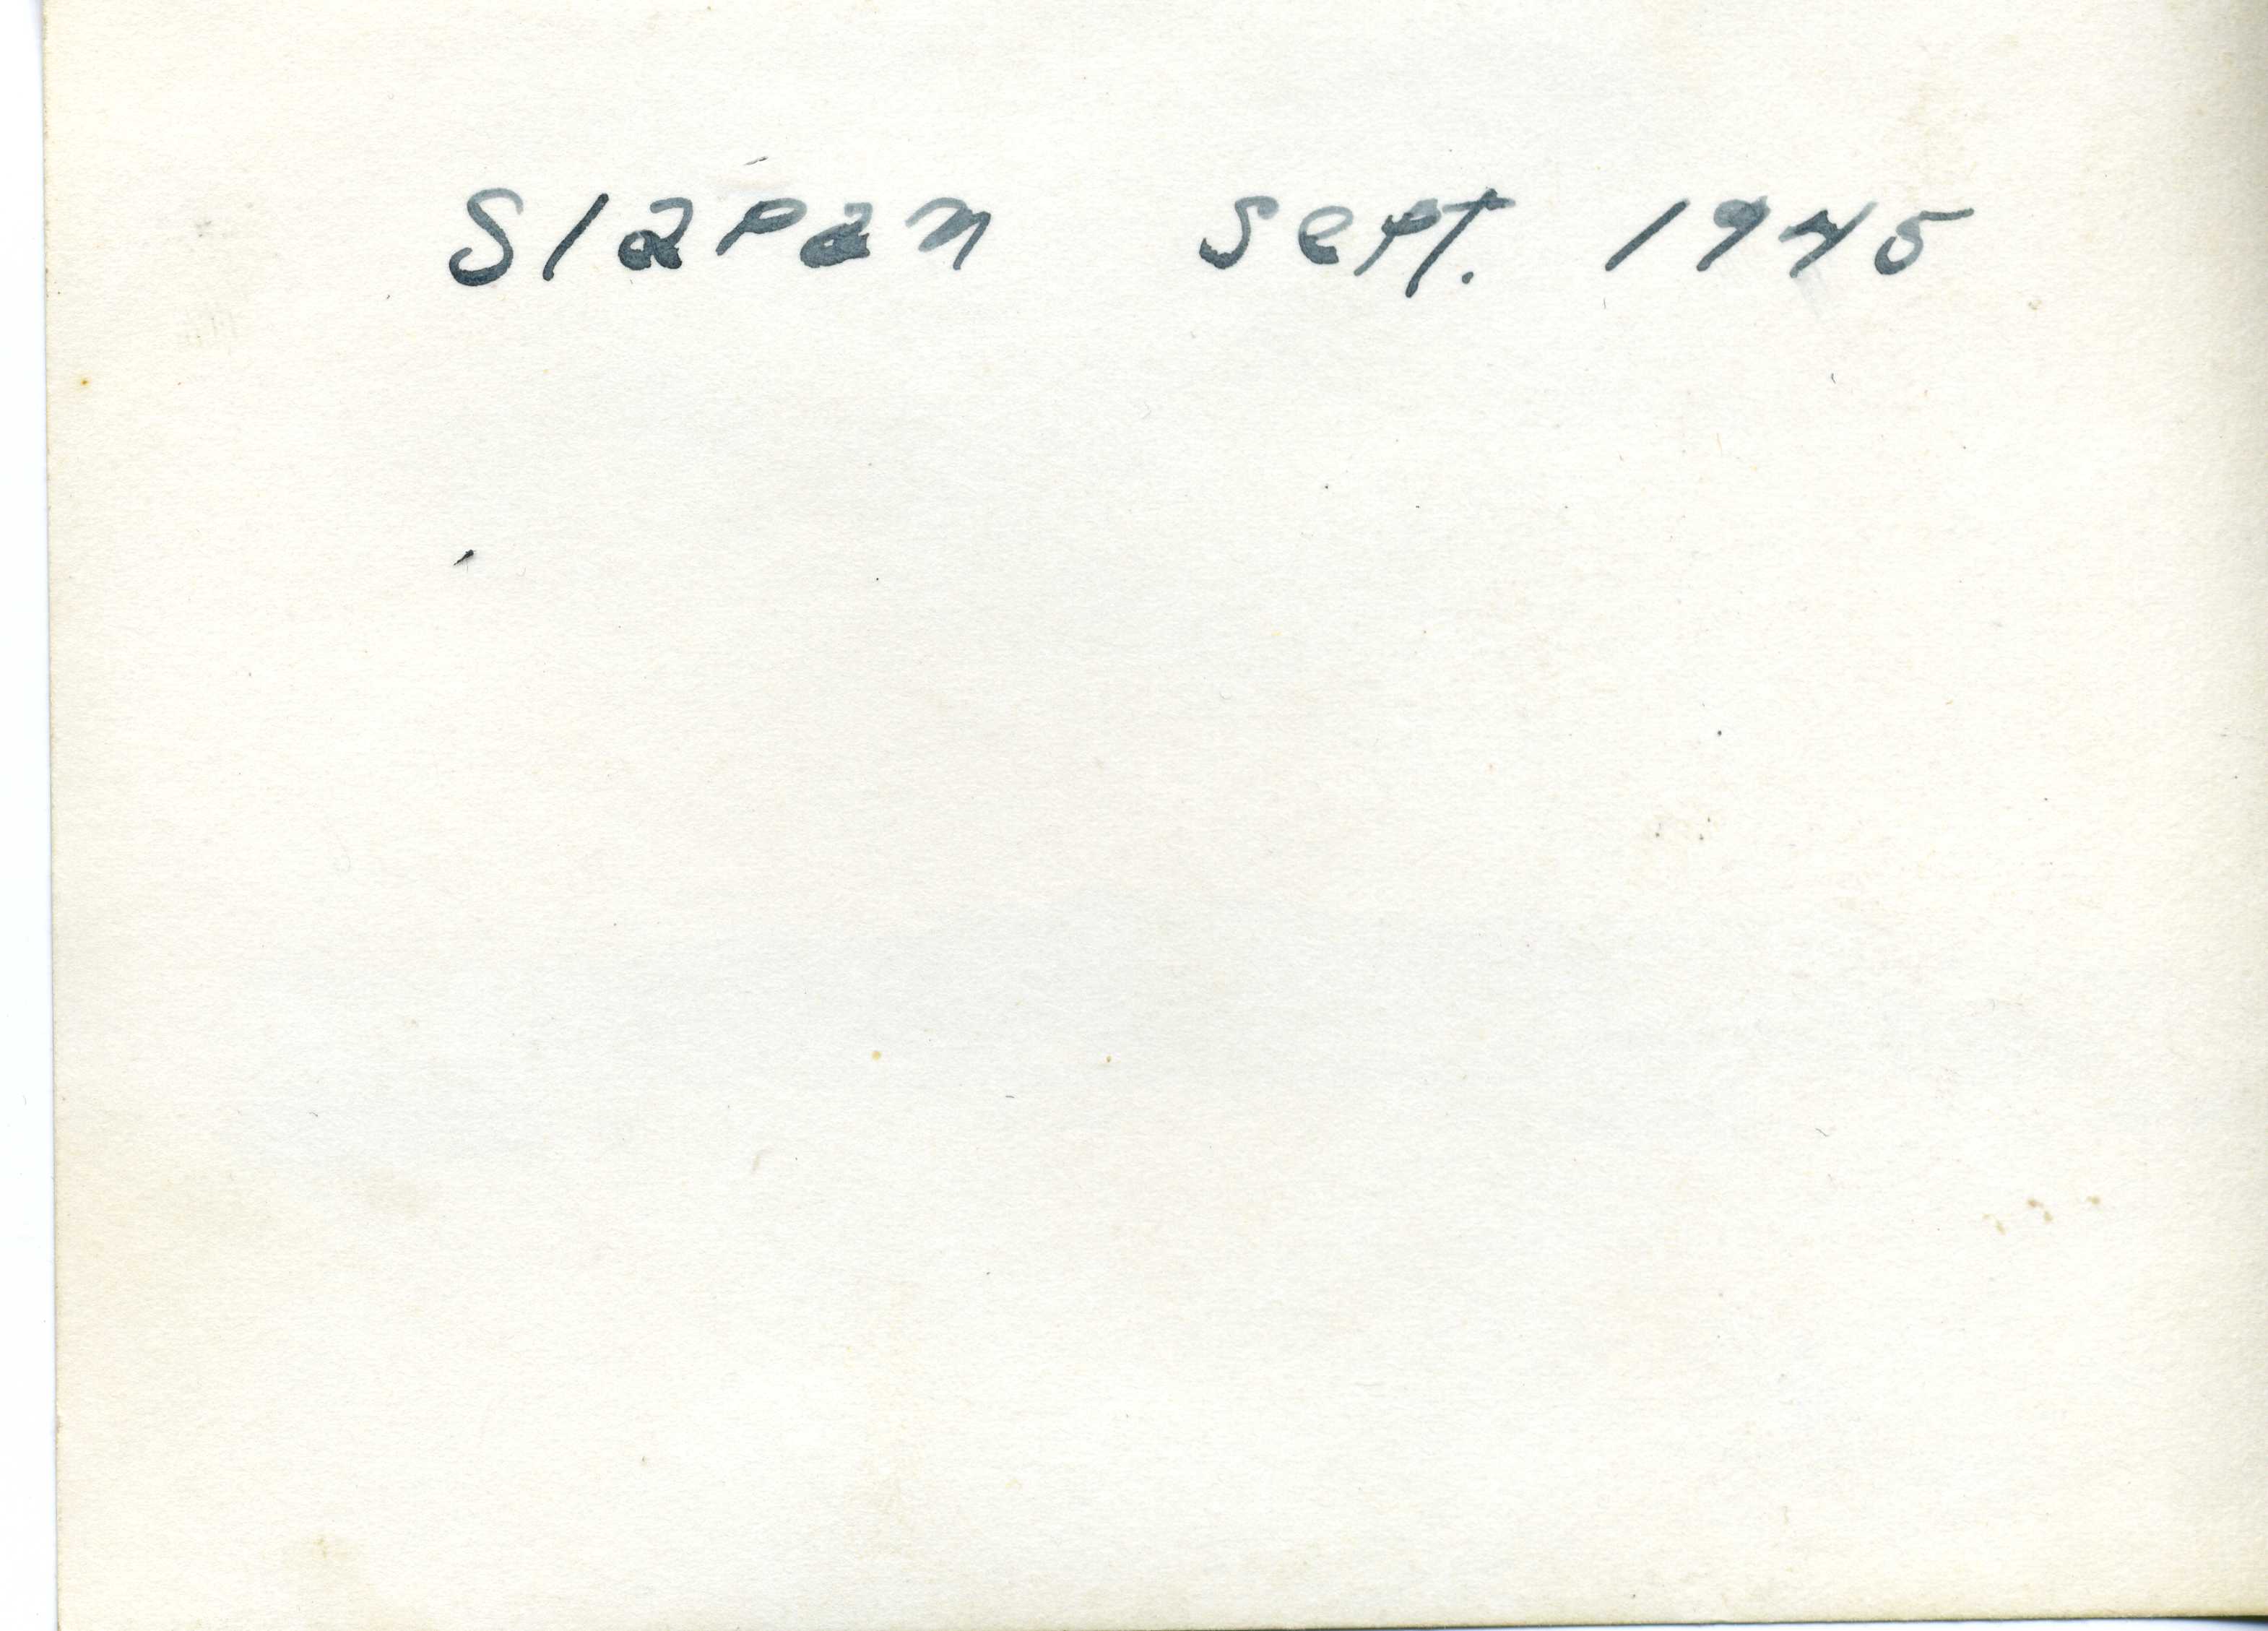 Siapan Sept. 1945